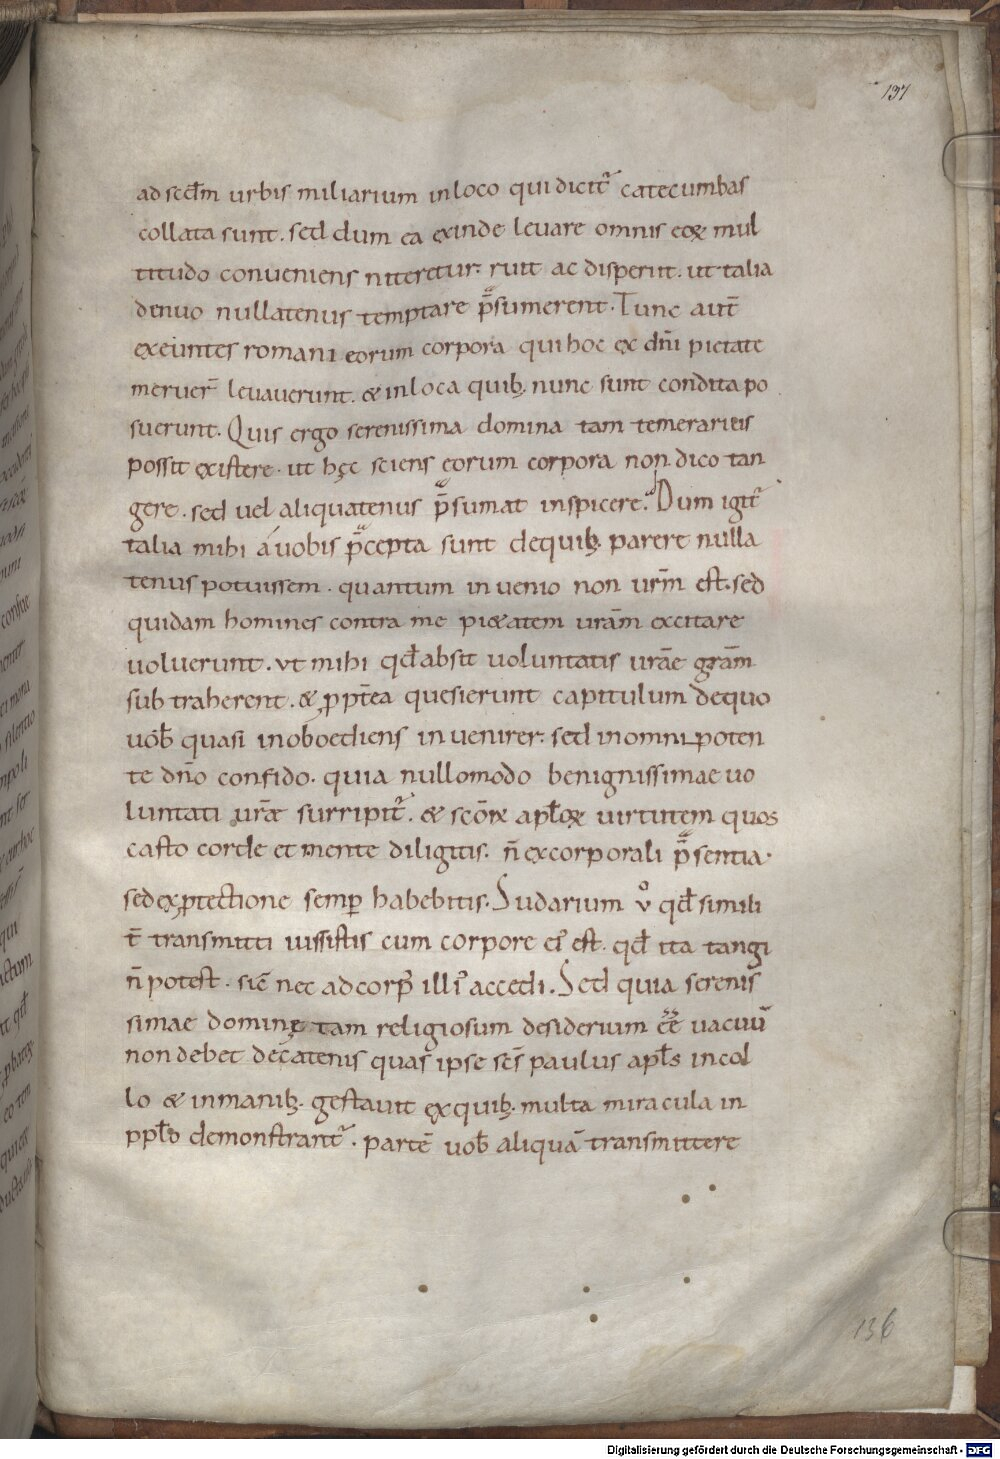 137
ad scd̄m urbis miliarium in loco qui dicit᷑ catecumbas
collata sunt. sed dum ea exinde levare omnis eoꝝ mul
titudo conveniens niteretur. ruit ac disperiit. ut talia
denuo nullatenus temptare p̄sumerent. Tunc aut̄
exeuntes romani eorum corpora qui hoc ex dn̄i pietate
meruer̄ levaverunt. & in loca quib; nunc sunt condita po
suerunt. Quis ergo serenissima domina tam temerarius
possit existere. ut hęc sciens eorum corpora non dico tan
gere. sed vel aliquatenus p̄sumat inspicere. Dum igit᷑
talia mihi á vobis p̄cepta sunt de quib; parere nulla
tenus potuissem. quantum invenio non vr̄m est. sed
quidam homines contra me pi&atem vrām excitare
voluerunt. ut mihi qd̄ absit voluntatis vrāe grām
subtraherent. & ꝓpt̄ea quesierunt capitulum de quo
vob̄ quasi inoboediens invenirer. sed in omnipoten
te dn̄o confido. quia nullomodo benignissimae vo
luntati vrāe surripit᷑. & scōꝝ apl̄oꝝ virtutem quos
casto corde et mente diligitis. n̄ ex corporali p̄sentia.
sed ex ꝓtectione semꝑ habebitis. Sudarium vͦ qd̄ simili
t̄ transmitti iussistis cum corpore ei᷒ est. qd̄ ita tangi
n̄ potest. sic̄ nec ad corp᷒ illi᷒ accedi. Sed quia serenis
simae dominę tam religiosum desiderium ēē vacuū
non debet de catenis quas ipse sc̄s paulus apl̄s in col
lo & in manib; gestavit ex quib; multa miracula in
ppl̄o demonstrant᷑. partē vob̄ aliquā transmittere
136
Digitalisierung gefördert durch die Deutsche Forschungsgemeinschaft - DFG